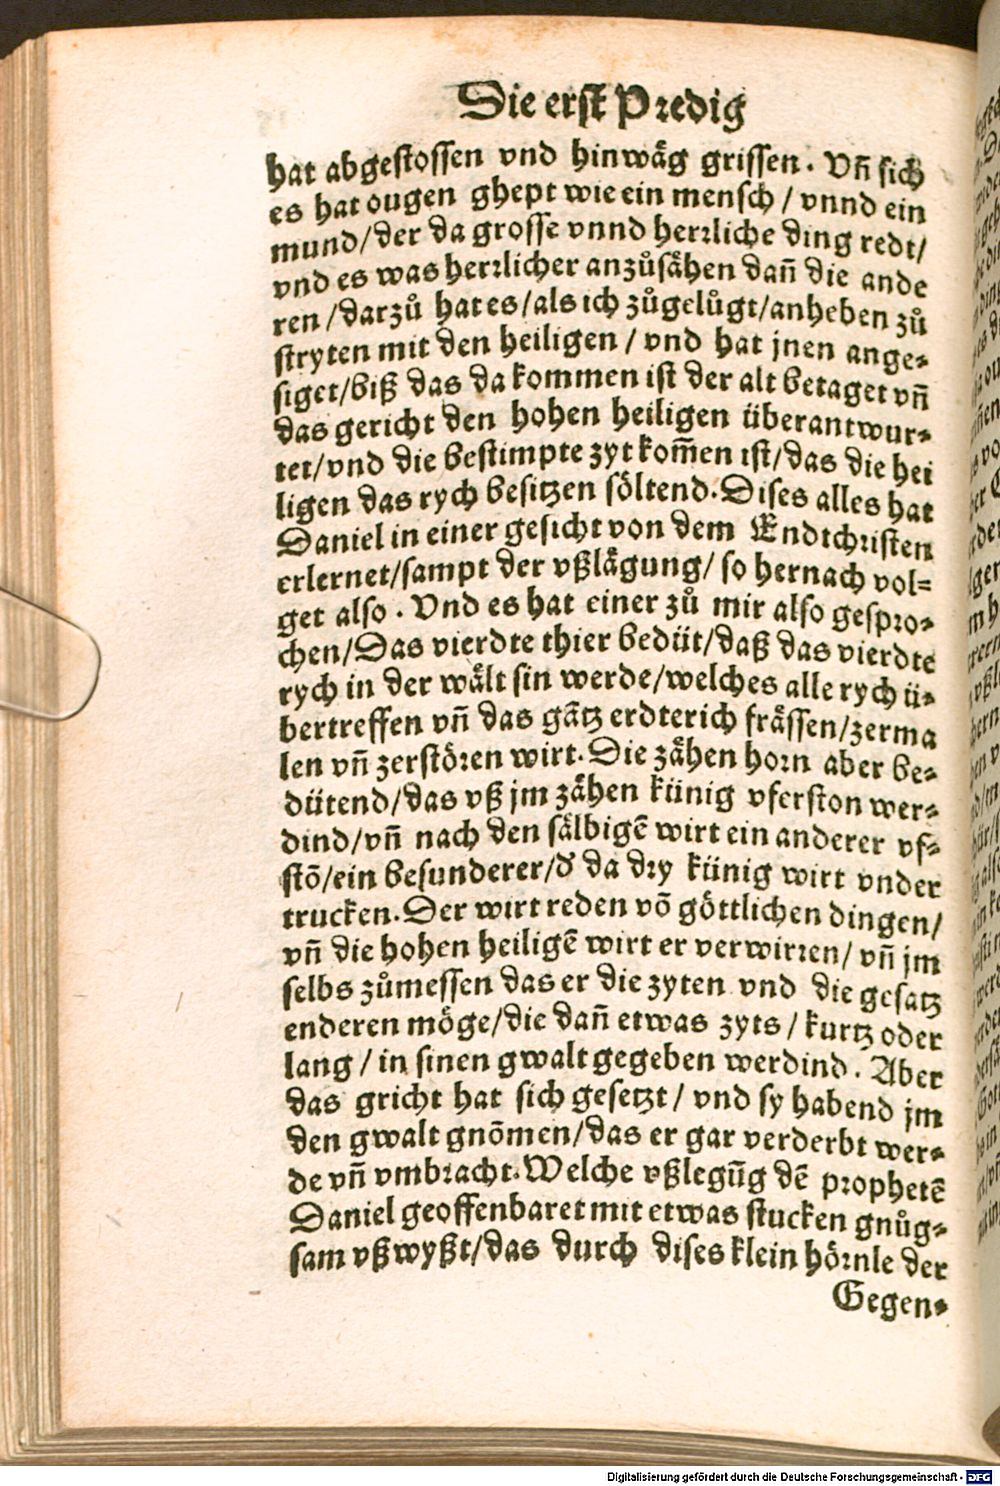 Die erst Predig
hat abgestossen vnd hinwäg grissen. Vñ sich
es hat ougen ghept wie ein mensch / vnnd ein
mund/der da grosse vnnd herrliche ding redt/
vnd es was herrlicher anzůsähen dañ die ande
ren/darzů hat es/als ich zůgelůgt/anheben zů
stryten mit den heiligen / vnd hat jnen ange-
siget/biß das da kommen ist der alt betaget vñ
das gericht den hohen heiligen überantwur-
tet/vnd die bestimpte zyt kom̃en ist/das die hei
ligen das rych besitzen söltend. Dises alles hat
Daniel in einer gesicht von dem Endtchristen
erlernet/sampt der vßlägung/ so hernach vol-
get also. Vnd es hat einer zů mir also gespro-
chen/Das vierdte thier bedüt/daß das vierdte
rych in der wält sin werde/welches alle rych ü-
bertreffen vñ das gãtz erdterich frässen/zerma
len vñ zerstören wirt. Die zähen horn aber be-
dütend/das vß jm zähen künig vferston wer-
dind/vñ nach den sälbigẽ wirt ein anderer vf-
stõ/ein besunderer/d' da dry künig wirt vnder
trucken. Der wirt reden võ göttlichen dingen/
vñ die hohen heiligẽ wirt er verwirren/ vñ jm
selbs zůmessen das er die zyten vnd die gesatz
enderen möge/die dañ etwas zyts / kurtz oder
lang / in sinen gwalt gegeben werdind. Aber
das gricht hat sich gesetzt / vnd sy habend jm
den gwalt gnõmen/das er gar verderbt wer-
de vñ vmbracht. Welche vßlegũg dẽ prophetẽ
Daniel geoffenbaret mit etwas stucken gnůg-
sam vßwyßt/das durch dises klein hörnle der
Gegen-
Digitalisierung gefördert durch die Deutsche Forschungsgemeinschaft - DFG